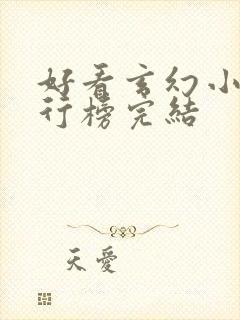 好看玄幻小
行榜完結
天愛